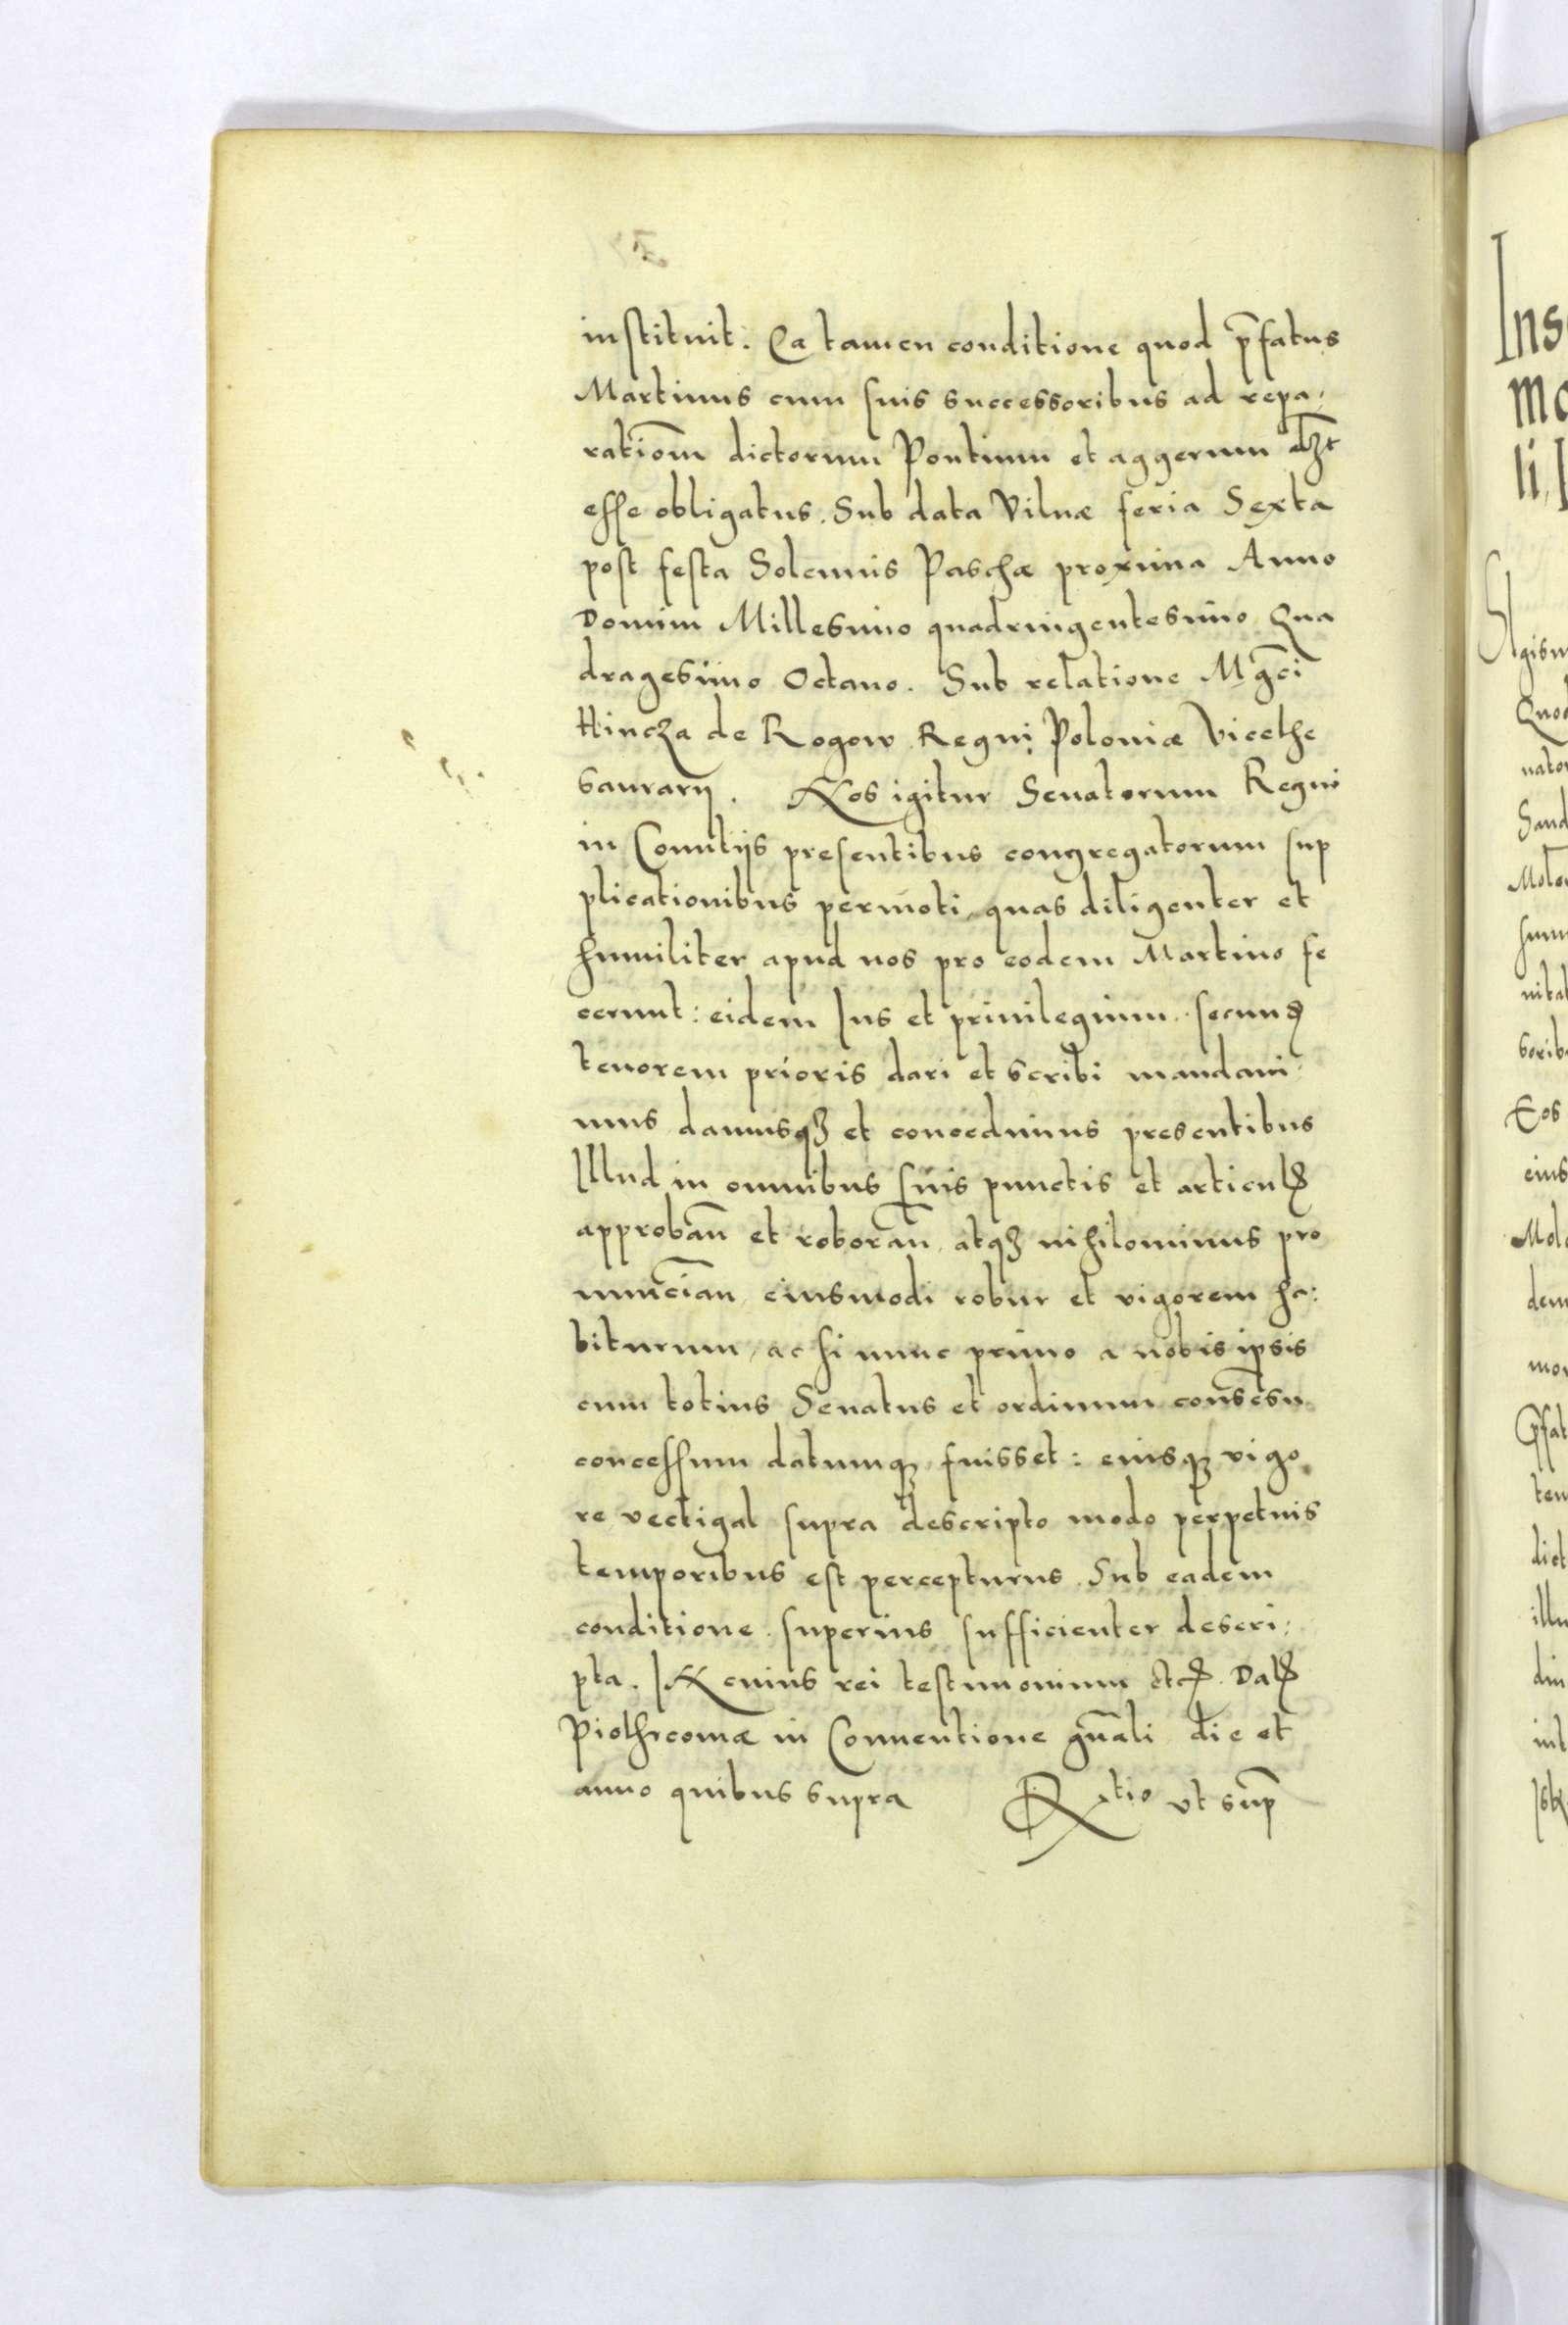 instituit: Ea tamen conditione quod p̄fatus
Martinus cum suis successoribus ad repa,
rationē dictorum Pontium et aggerum
esse obligatus. Sub data Vilnæ feria Sexta
post festa Solennis Paschæ proxima Anno
Domini Millesimo quadringentesimo Qua
dragesimo Octauo. Sub relatione M.gc̄i
Hincza de Rogow Regni Poloniæ Vicethe
saurarij. Nos igitur Senatorum Regni
in Comitijs presentibus congregatorum sup
plicationibus permoti, quas diligenter et
humiliter apud nos pro eodem Martino fe
cerunt: eidem Ius et priuilegium secundꝭ
tenorem prioris dari et scribi mandaui,
mus damusqꝫ et concedimus presentibus
Illud in omnibus suis punctis et articulꝭ
approban̄ et roboran̄, atqꝫ nihilominus pro
nuncian̄, eiusmodi robur et vigorem ha:
biturum, ac si nunc primo a nobis ipsis
cum totius Senatus et ordinum consēsu
concessum datumqꝫ fuisset: eiusqꝫ vigo
re vectigal supra descripto modo perpetuis
temporibus est percepturus. Sub eadem
conditione superius sufficienter descri,
pta. IN cuius rei testimonium etcꝭ. Datꝭ
Piothrcouiæ in Conuentione gn̄ali die et
anno quibus supra Rtio vt sup̄
Ins
mo
li,
Sigism
Quod
nator
Sand
hum
nitat
sorib
Eos
eius
Mold
dem
mor
p̄fat
ten
dict
illu
din
int